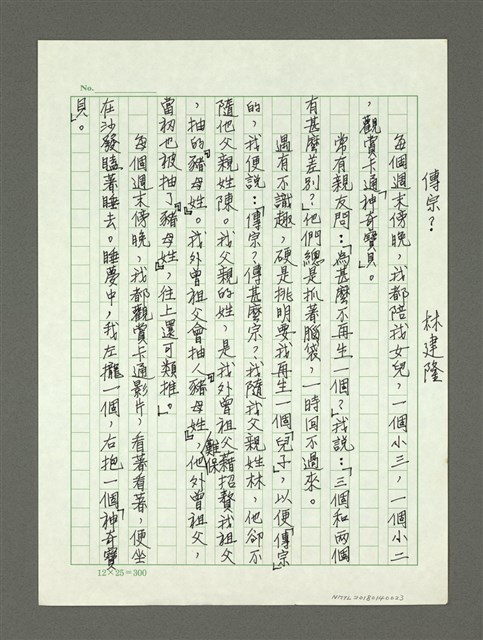 No.
傳宗？　林建隆
每個週末傍晚，我都陪我女兒，一個小三，一個小二
，觀賞卡通「神奇寶貝」。
常有親友問：「為甚麼不再生一個？」我說：「三個和兩個
有甚麼差別？」他們總是抓著腦袋，一時回不過來。
遇有不識趣，硬是挑明要我再生一個「兒子」，以便「傳宗」
的，我便說：傳宗？傳甚麼宗？我隨我父親姓林，他卻不
隨他父親姓陳。我父親的姓，是我外曾祖父藉招贅我祖父
，抽的「豬母姓」。我外曾祖父會抽人「豬母姓」，難保他外曾祖父，
當初也被抽了「豬母姓」，往上還可類推。
每個週末傍晚，我都觀賞卡通影片，看著看著，便坐
在沙發瞌著睡去。睡夢中，我左攏一個，右抱一個「神奇寶
貝」。
12×25=300
NMTL20180140023